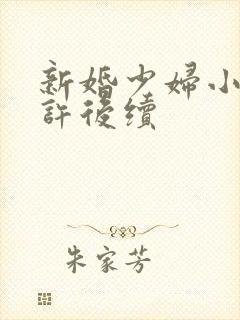 新婚少婦小
許後續
朱家芳